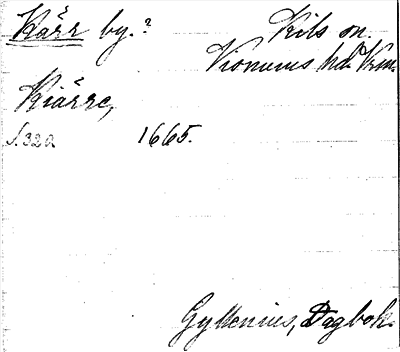 Kärr by.? Kils sn.
Visnums hd. Vrm.
Kiärre,
S. 320. 1665.
Gyllenius, Dagbok.